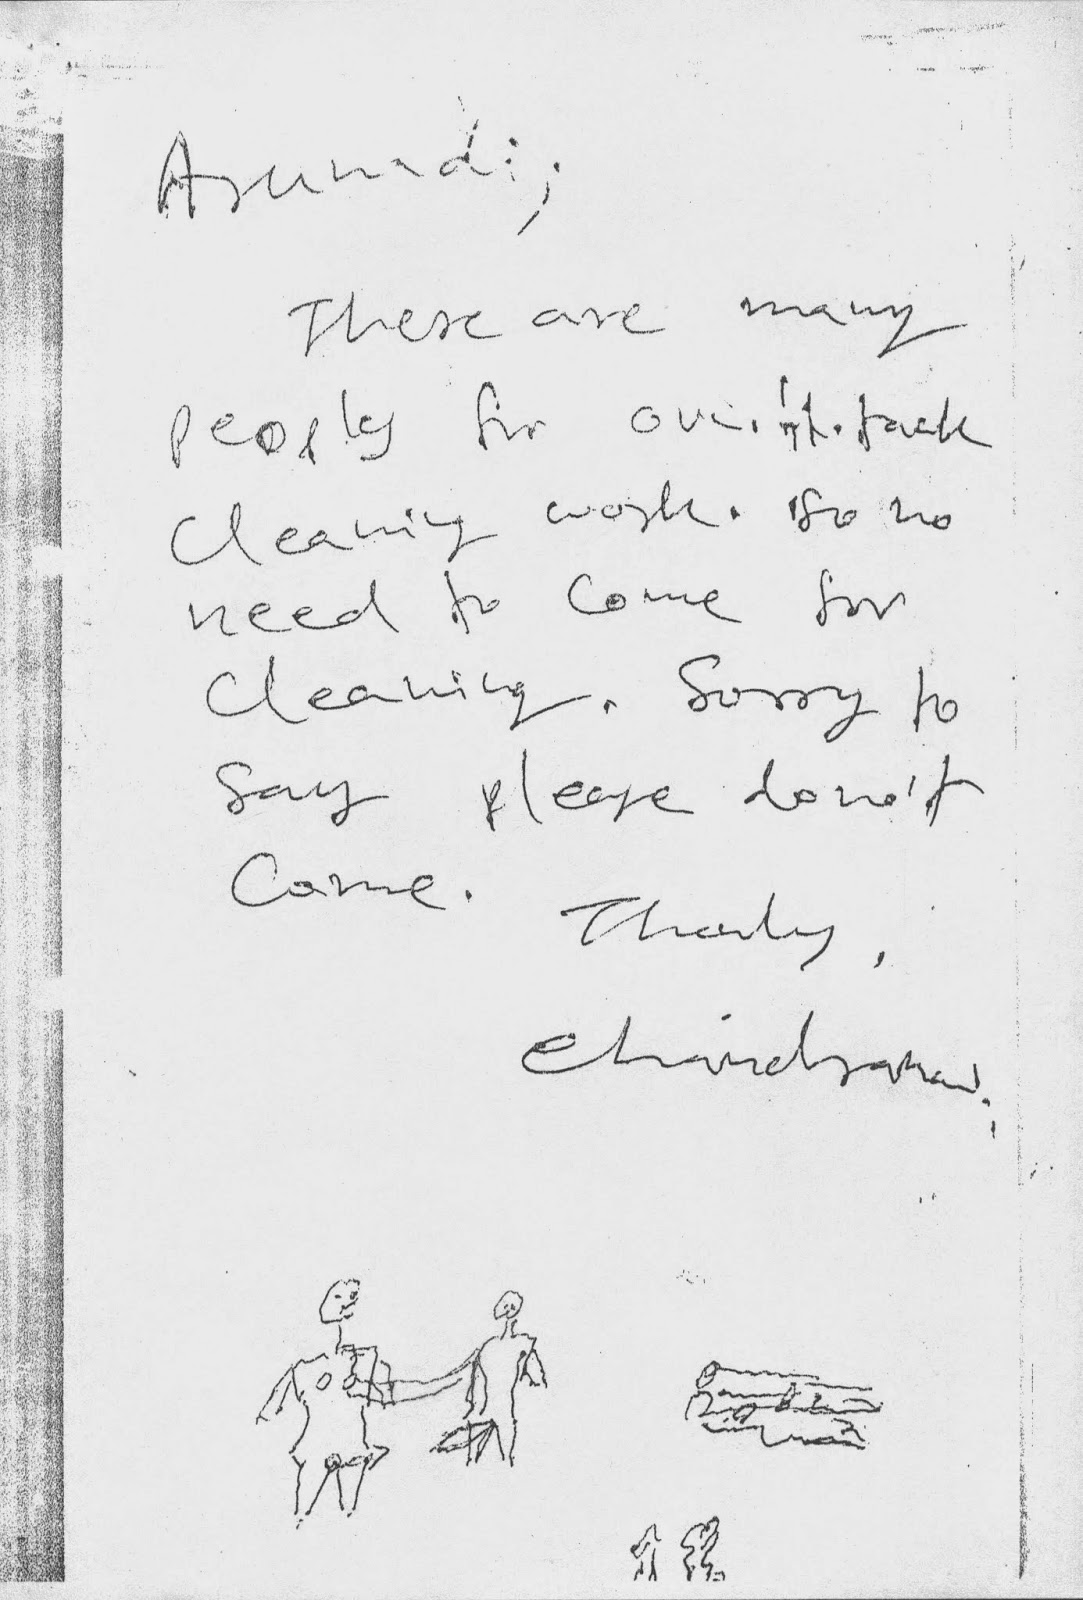 Arunadi;
There are many
people for over.it.tank
cleaning work. so no
need to come for
cleaning. Sorry to
say please dono't
Come.
Thanks,
Chandraman.